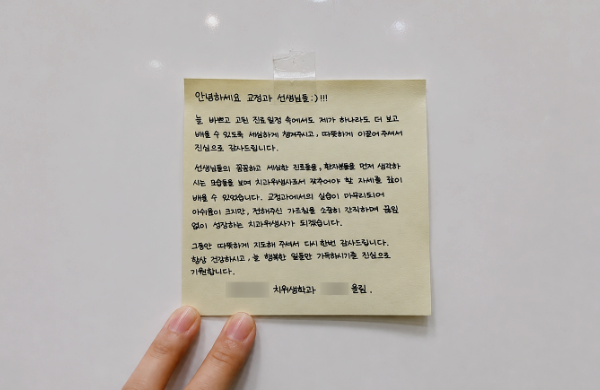 안녕하세요 교정과 선생님들 :) !!!
늘 바쁘고 고된 진료일정 속에서도 제가 하나라도 더 보고
배울 수 있도록 세심하게 챙겨주시고, 따뜻하게 이끌어 주셔서
진심으로 감사드립니다.
선생님들의 꼼꼼하고 세심한 진료들을, 환자분들을 먼저 생각하
시는 모습들을 보며 치과위생사로서 갖추어야 할 자세를 많이
배울 수 있었습니다. 교정과에서의 실습이 마무리되어
아쉬움이 크지만, 전해주신 가르침을 소중히 간직하며 끊임
없이 성장하는 치과위생사가 되겠습니다.
그동안 따뜻하게 지도해 주셔서 다시 한번 감사드립니다.
항상 건강하시고, 늘 행복한 일들만 가득하시기를 진심으로
기원합니다.
치위생학과 올림.